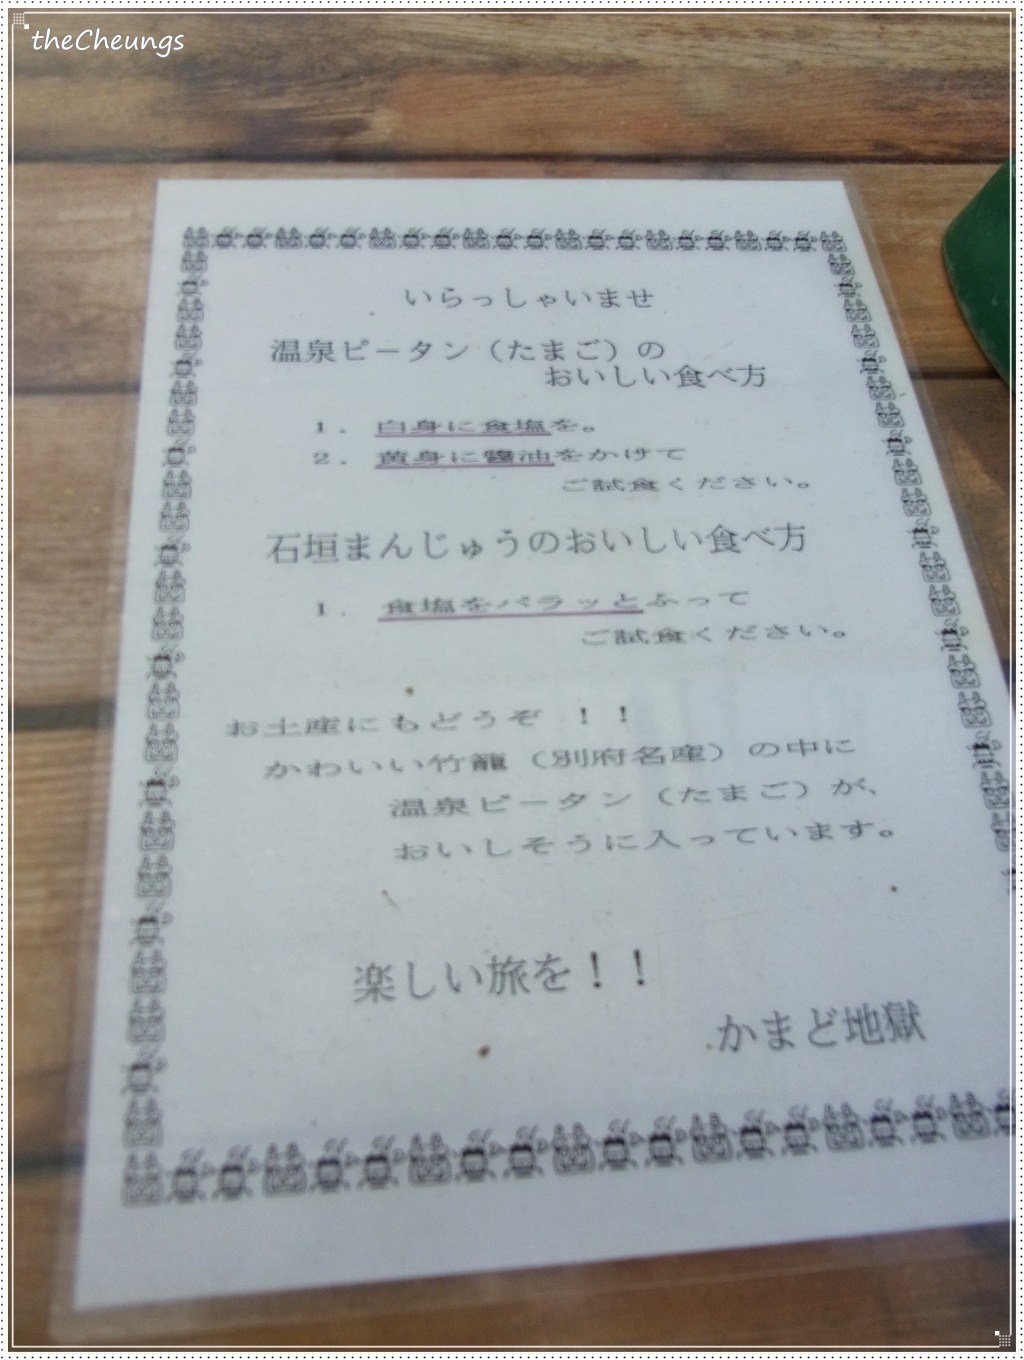 theCheungs
いらっしゃいませ
温泉ピータン（たまご）の
おいしい食べ方
１．白身に食塩を。
２．黄身に醤油をかけて
ご試食ください。
石垣まんじゅうのおいしい食べ方
１．食塩をパラッとふって
ご試食ください。
お土産にもどうぞ！！
かわいい竹籠（別府名産）の中に
温泉ピータン（たまご）が、
おいしそうに入っています。
楽しい旅を！！
かまど地獄